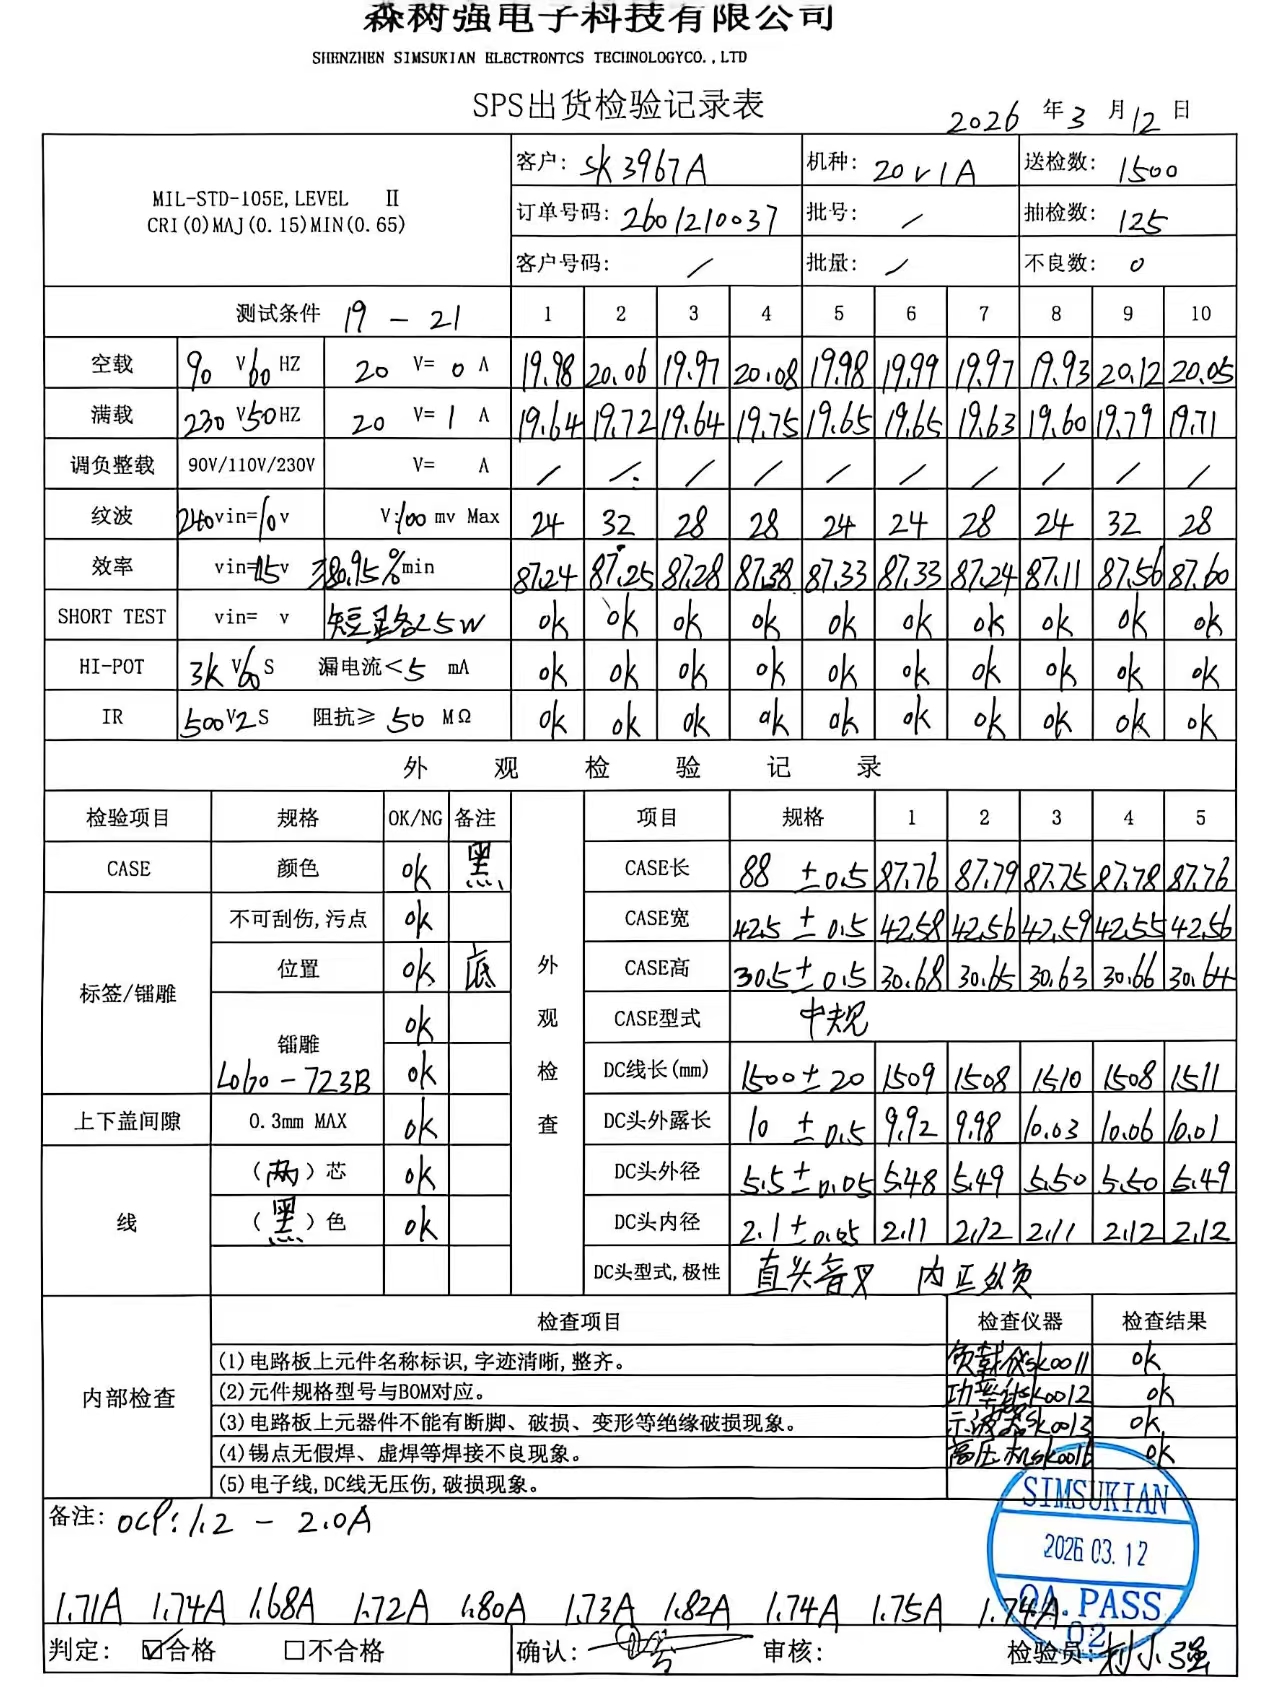 森树强电子科技有限公司
SHENZHEN SIMSUKIAN ELECTRONTCS TECHNOLOGYCO.,LTD
SPS出货检验记录表
2026 年 3 月 12 日
MIL-STD-105E,LEVEL Ⅱ
CRI(0)MAJ(0.15)MIN(0.65)
客户: SK3967A 机种: 20V1A 送检数: 1500
订单号码: 2601210037 批号: / 抽检数: 125
客户号码: / 批量: / 不良数: 0
测试条件 19 - 21 1 2 3 4 5 6 7 8 9 10
空载 90 V 60 HZ 20 V= 0 A 19.98 20.06 19.97 20.08 19.98 19.99 19.97 19.93 20.12 20.05
满载 230 V 50 HZ 20 V= 1 A 19.64 19.72 19.64 19.75 19.65 19.65 19.63 19.60 19.79 19.71
调负整载 90V/110V/230V V= A / / / / / / / / / /
纹波 240 vin= v V: 100 mv Max 24 32 28 28 24 24 28 24 32 28
效率 vin= 115 v 80.95% min 87.24 87.25 87.28 87.38 87.33 87.33 87.24 87.11 87.56 87.60
SHORT TEST vin= v 短路25W ok ok ok ok ok ok ok ok ok ok
HI-POT 3K V 60 S 漏电流< 5 mA ok ok ok ok ok ok ok ok ok ok
IR 500 V 2 S 阻抗≥ 50 MΩ ok ok ok ok ok ok ok ok ok ok
外观检验记录
检验项目 规格 OK/NG 备注 项目 规格 1 2 3 4 5
CASE 颜色 ok 黑 CASE长 88 ±0.5 87.76 87.79 87.75 87.78 87.76
不可刮伤,污点 ok CASE宽 42.5 ± 0.5 42.58 42.56 42.59 42.55 42.56
标签/镭雕 位置 ok 底 外观检查 CASE高 30.5 ± 0.5 30.68 30.65 30.63 30.66 30.64
ok CASE型式 中规
镭雕
Logo-723B ok DC线长(mm) 1500±20 1509 1508 1510 1508 1511
上下盖间隙 0.3mm MAX ok DC头外露长 10 ±0.5 9.92 9.98 10.03 10.06 10.01
线 (两)芯 ok DC头外径 5.5±0.05 5.48 5.49 5.50 5.50 5.49
(黑)色 ok DC头内径 2.1±0.05 2.11 2.12 2.11 2.12 2.12
DC头型式,极性 直头音叉 内正外负
内部检查 检查项目 检查仪器 检查结果
(1)电路板上元件名称标识,字迹清晰,整齐。 负载仪SK0011 ok
(2)元件规格型号与BOM对应。 功率仪SK0012 ok
(3)电路板上元器件不能有断脚、破损、变形等绝缘破损现象。 示波器SK0013 ok
(4)锡点无假焊、虚焊等焊接不良现象。 高压机SK0016 ok
(5)电子线,DC线无压伤,破损现象。
备注: OCP: 1.2 - 2.0A
SIMSUKIAN
2026.03.12
QA.PASS
02
1.71A 1.74A 1.68A 1.72A 1.80A 1.73A 1.82A 1.74A 1.75A 1.74A
判定: ☑合格 □不合格 确认: 审核: 检验员: 刘小强